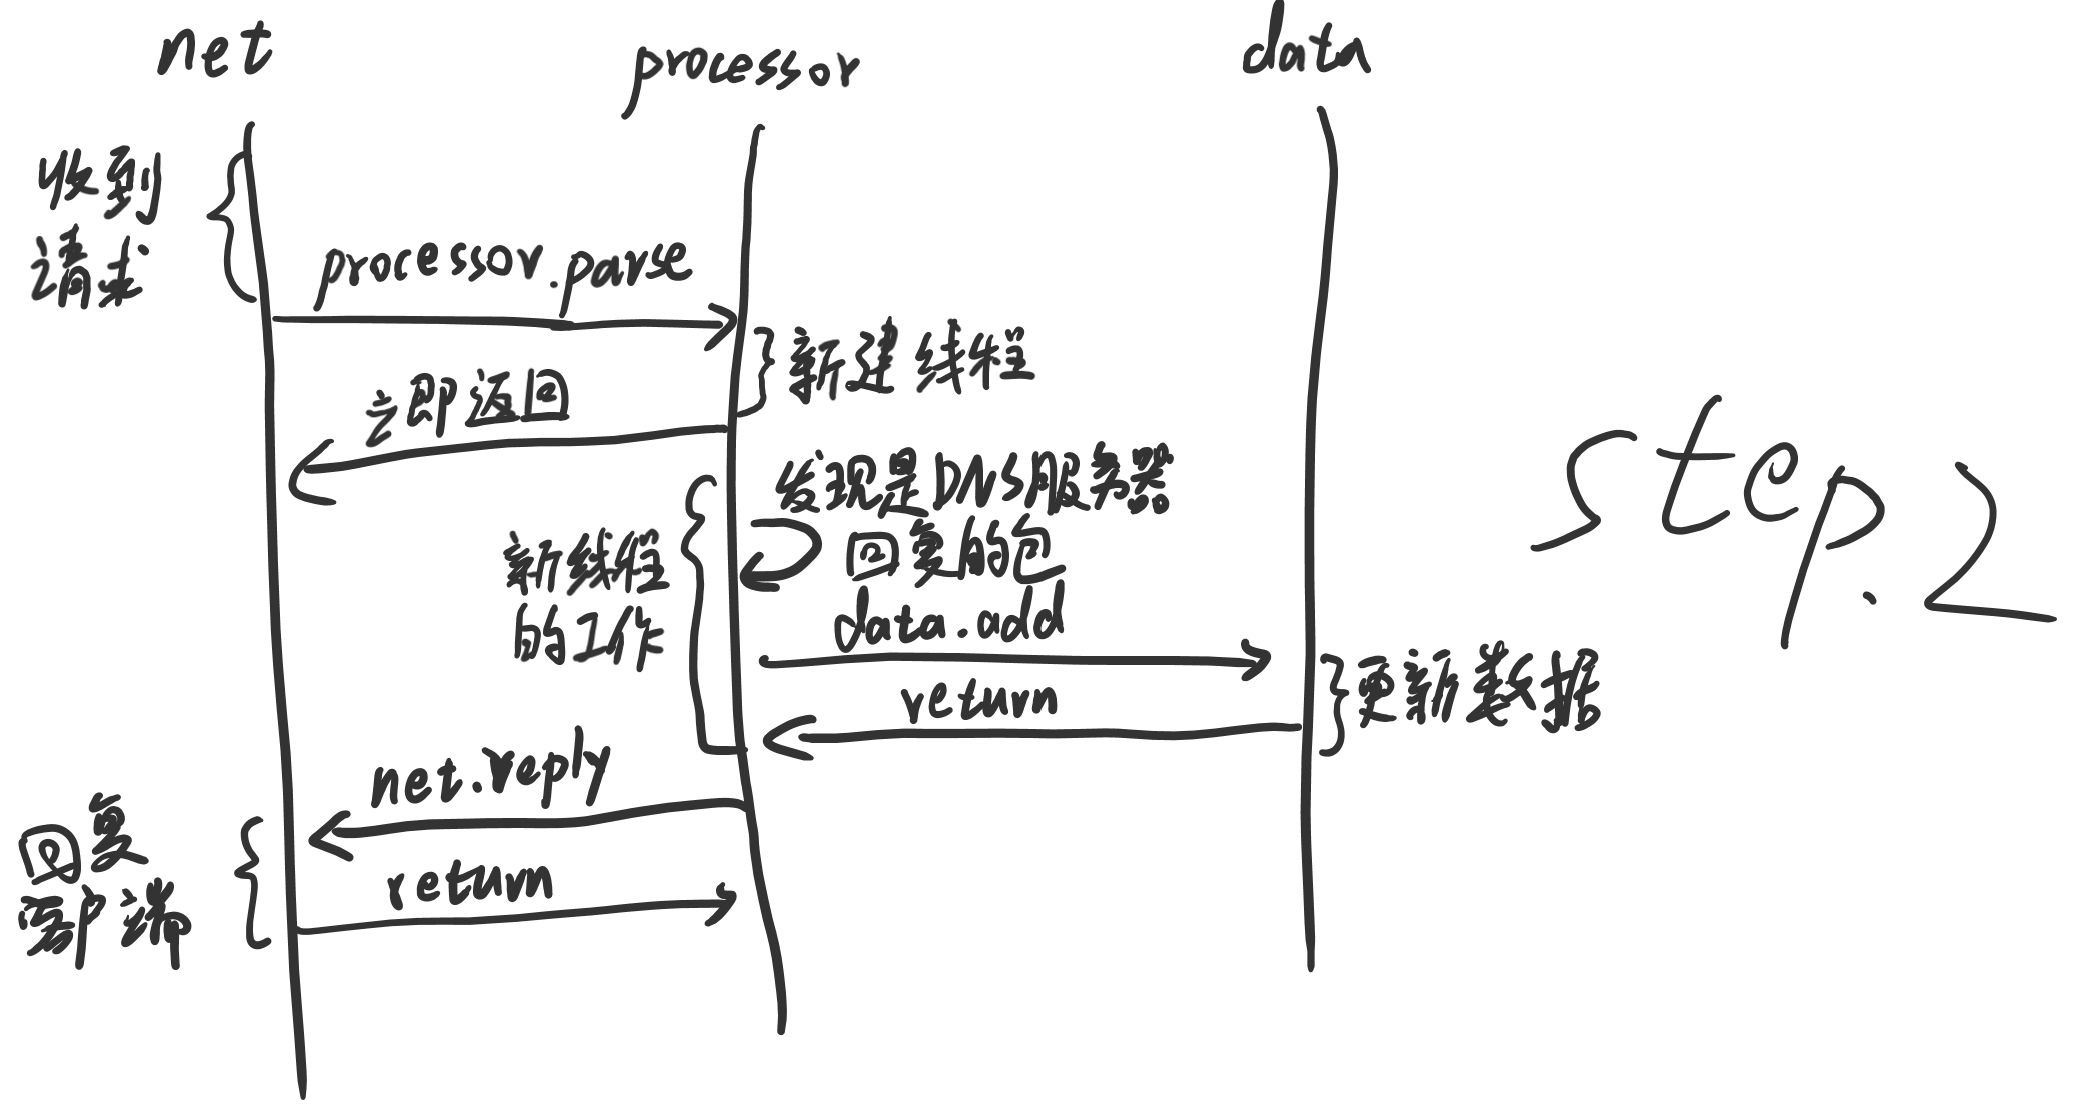 net
processor
data
收到
请求
processor.parse
新建线程
立即返回
step.2
发现是DNS服务器
回复的包
新线程
的工作
data.add
更新数据
return
net.reply
回复
客户端
return